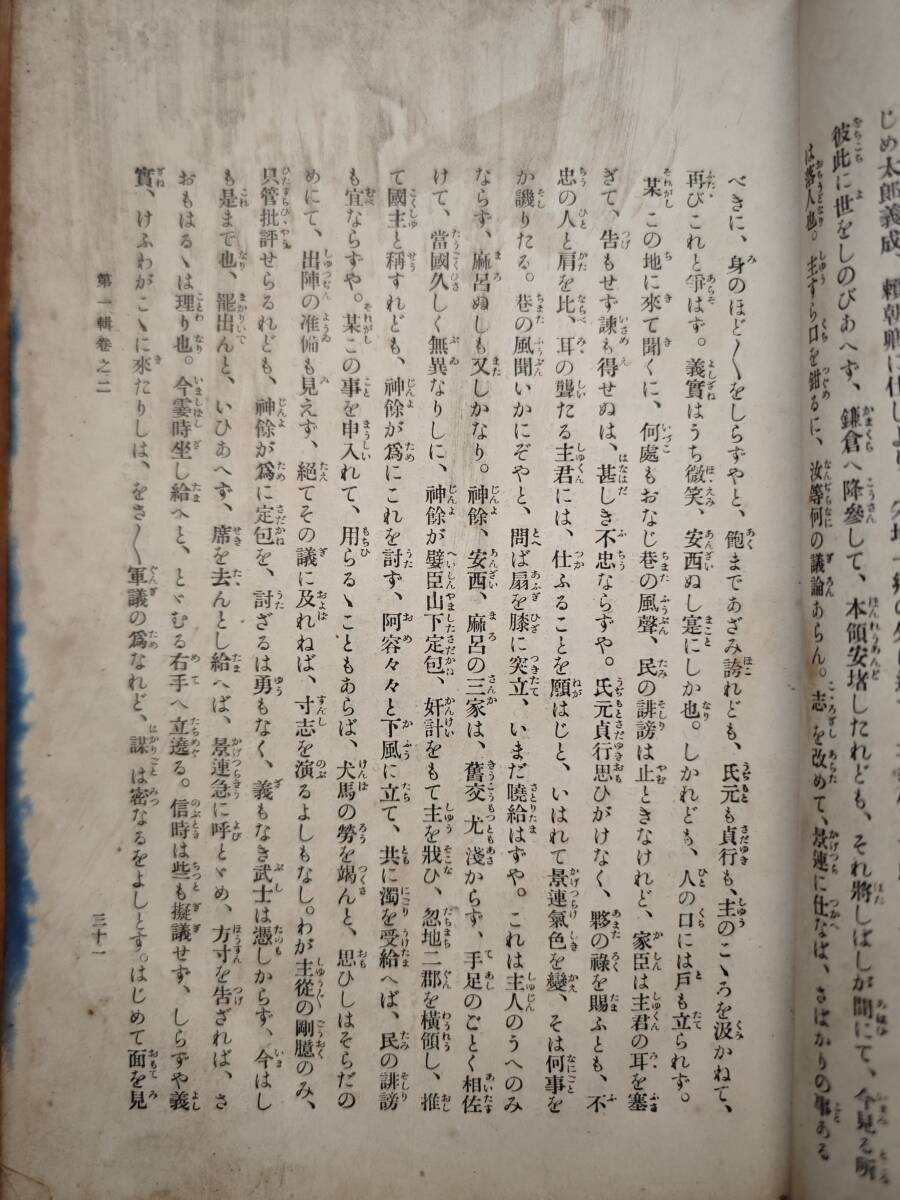 じめ太郎義成、
彼此に世をしのびあへず、鎌倉へ降參して、本領安堵したれども、それ將しばしが間にて、今見る所
は落人也。主すら口を鉗るに、汝等何の議論あらん。志を改めて、景連に仕なば、さばかりの事ある
べきに、身のほど〳〵をしらずやと、飽まであざみ誇れども、氏元も貞行も、主のこゝろを汲かねて、
再びこれと爭はず。義實はうち微笑、安西ぬし寔にしか也。しかれども、人の口には戸も立られず。
某この地に來て聞くに、何處もおなじ巷の風聲、民の誹謗は止ときなけれど、家臣は主君の耳を塞
ぎて、告もせず諫も得せぬは、甚しき不忠ならずや。氏元貞行思ひがけなく、夥の祿を賜ふとも、不
忠の人と肩を比、耳の聾たる主君には、仕ふることを願はじと、いはれて景連氣色を變、そは何事を
か譏りたる。巷の風聞いかにぞやと、問ば扇を膝に突立、いまだ曉給はずや。これは主人のうへのみ
ならず、麻呂ぬしも又しかなり。神餘、安西、麻呂の三家は、舊交尤淺からず、手足のごとく相佐
けて、當國久しく無異なりしに、神餘が嬖臣山下定包、奸計をもて主を戕ひ、忽地二郡を橫領し、推
て國主と稱すれども、神餘が爲にこれを討ず、阿容々々と下風に立て、共に濁を受給へば、民の誹謗
も宜ならずや。某この事を申入れて、用らるゝこともあらば、犬馬の勞を竭んと、思ひしはそらだの
めにて、出陣の准備も見えず、絕てその議に及れねば、寸志を演るよしもなし。わが主從の剛臆のみ、
只管批評せらるれども、神餘が爲に定包を、討ざるは勇もなく、義もなき武士は憑しからず、今はし
も是まで也、罷出んと、いひあへず、席を去んとし給へば、景連急に呼とゞめ、方寸を告ざれば、さ
おもはるゝは理り也。今霎時坐し給へと、とゞむる右手へ立遶る。信時は些も擬議せず、しらずや義
實、けふわがこゝに來たりしは、をさ〳〵軍議の爲なれど、謀は密なるをよしとす。はじめて面を見
第一輯卷之二
三十一